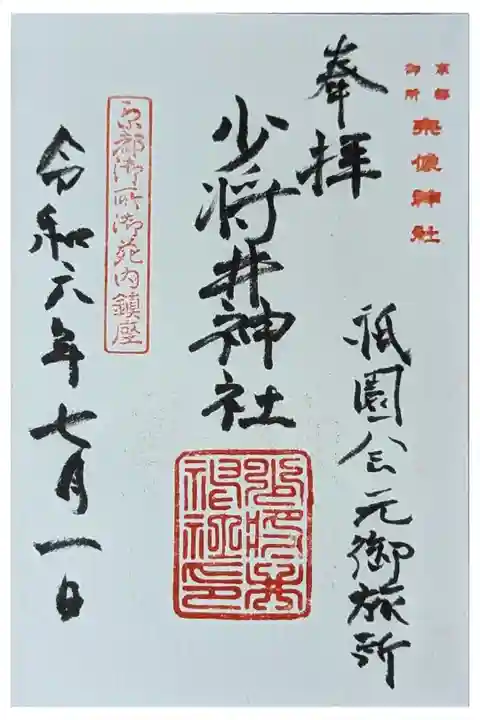 京都
御所
宗像神社
奉拝
祇園会元御旅所
少将井神社
京都御所御苑内鎮座
令和六年七月一日